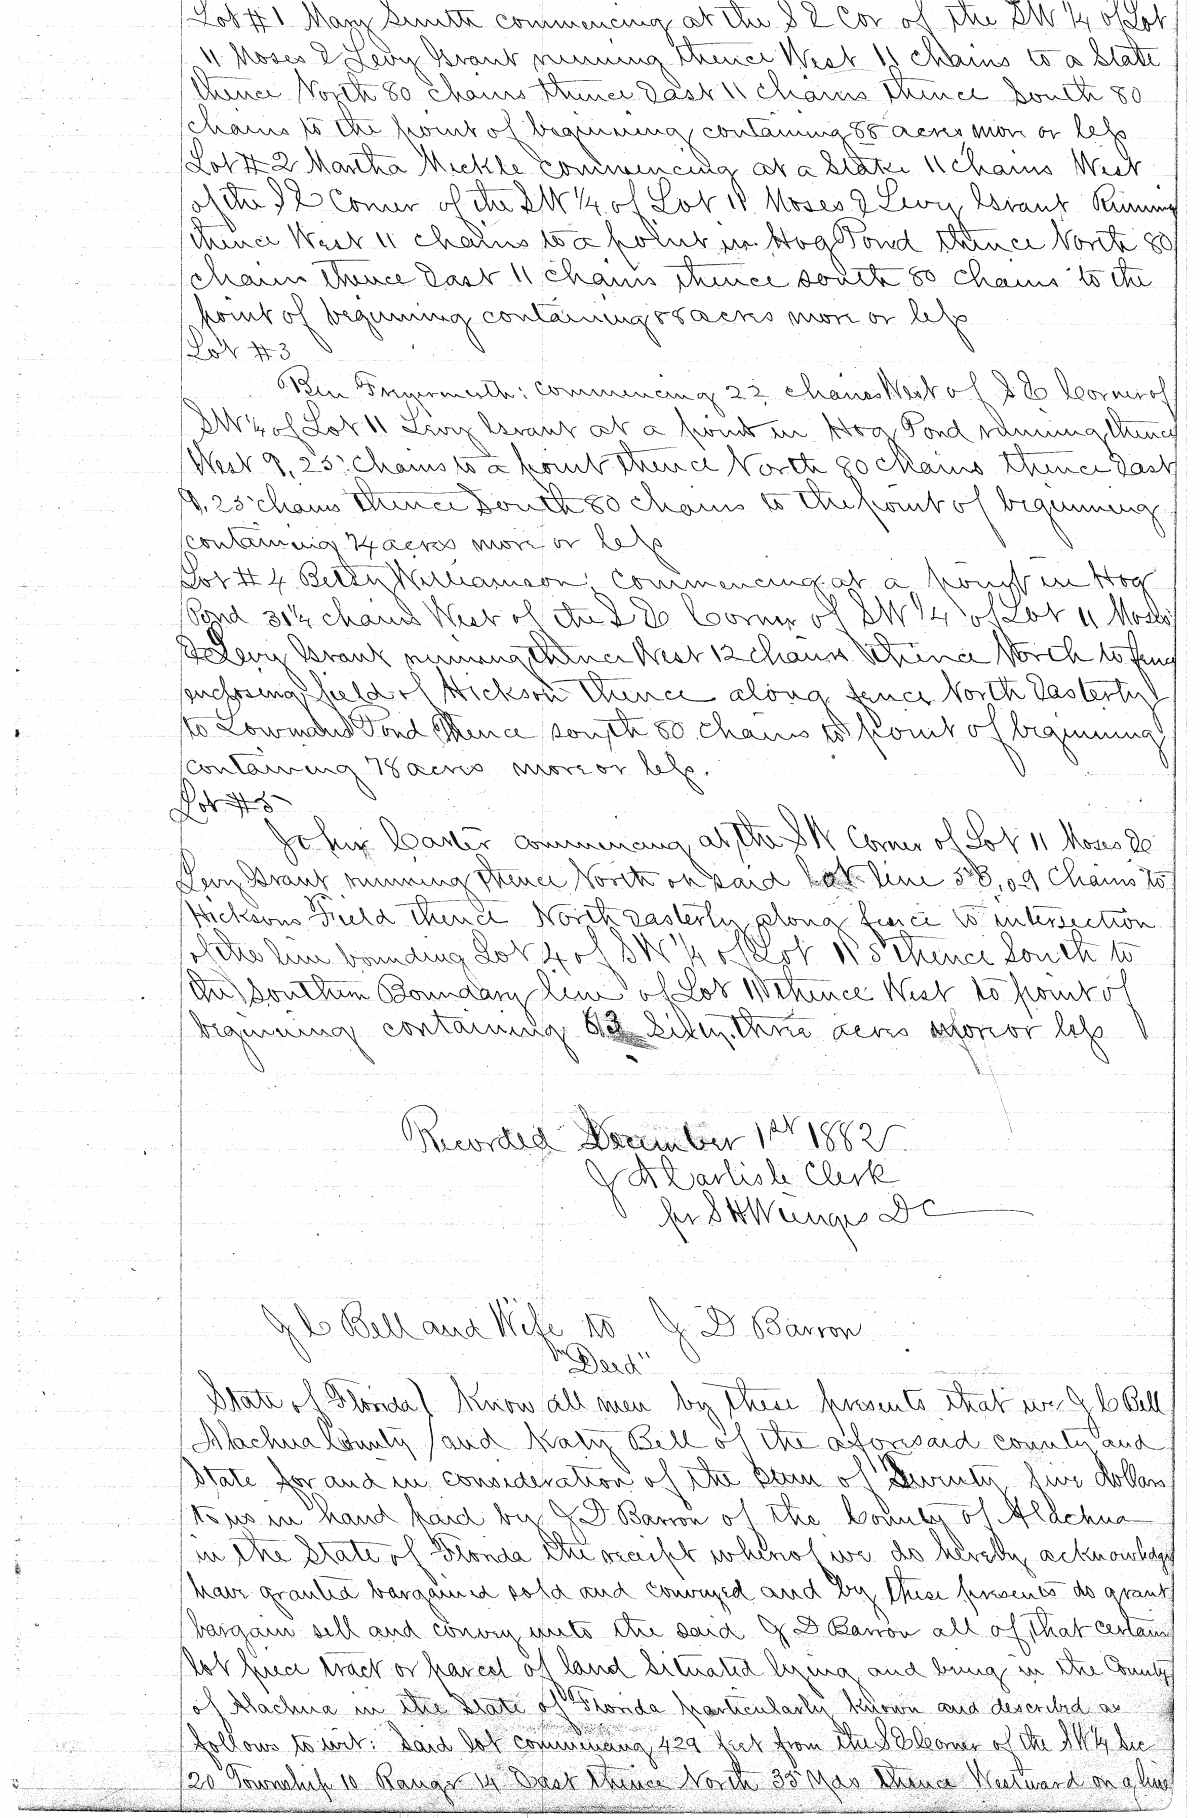 Lot #1 Mary Smith commencing at the S E Cor of the SW 1/4 of Lot
11 Moses E Levy Grant running thence West 11 chains to a Stake
thence North 80 chains thence East 11 chains thence South 80
chains to the point of beginning containing 88 acres more or less
Lot #2 Martha Mickle commencing at a Stake 11 chains West
of the S E Corner of the SW 1/4 of Lot 11 Moses E Levy Grant Running
thence West 11 chains to a point in Hog Pond thence North 80
chains thence East 11 chains thence south 80 chains to the
point of beginning containing 88 acres more or less
Lot #3
Ben commencing 22 chains West of S E Corner of
SW 1/4 of Lot 11 Levy Grant at a point in Hog Pond running thence
West 9,25 chains to a point thence North 80 chains thence East
9,25 chains thence South 80 chains to the point of beginning
containing 74 acres more or less
Lot #4 Betsy Williamson, commencing at a point in Hog
Pond 31 1/4 chains West of the S E Corner of SW 1/4 of Lot 11 Moses
E Levy Grant running thence West 12 chains thence North to fence
enclosing field of Hickson thence along fence North Easterly
to Pond thence south 80 chains to point of beginning
containing 78 acres more or less.
Lot #5
John Carter commencing at the SW Corner of Lot 11 Moses E
Levy Grant running thence North on said lot line 58,09 chains to
Hicksons Field thence North easterly along fence to intersection
of the line bounding Lot 4 of SW 1/4 of Lot 11 thence South to
the Southern Boundary line of Lot 11 thence West to point of
beginning containing 63 Sixty three acres more or less
Recorded December 1st 1882
J A Carlisle Clerk
per S H Wienges D C
J C Bell and Wife to J D Barron
"Deed"
State of Florida } Know all men by these presents that we J C Bell
Alachua County } and Katy Bell of the aforesaid county and
State for and in consideration of the sum of Seventy five dollars
to us in hand paid by J D Barron of the County of Alachua
in the State of Florida the receipt whereof we do hereby acknowledge
have granted bargained sold and conveyed and by these presents do grant
bargain sell and convey unto the said J D Barron all of that certain
lot piece tract or parcel of land Situated lying and being in the County
of Alachua in the State of Florida particularly known and described as
follows to wit: Said lot commencing 429 feet from the S E Corner of the SW 1/4 Sec
20 Township 10 Range 14 East thence North 35 Yds thence Westward on a line